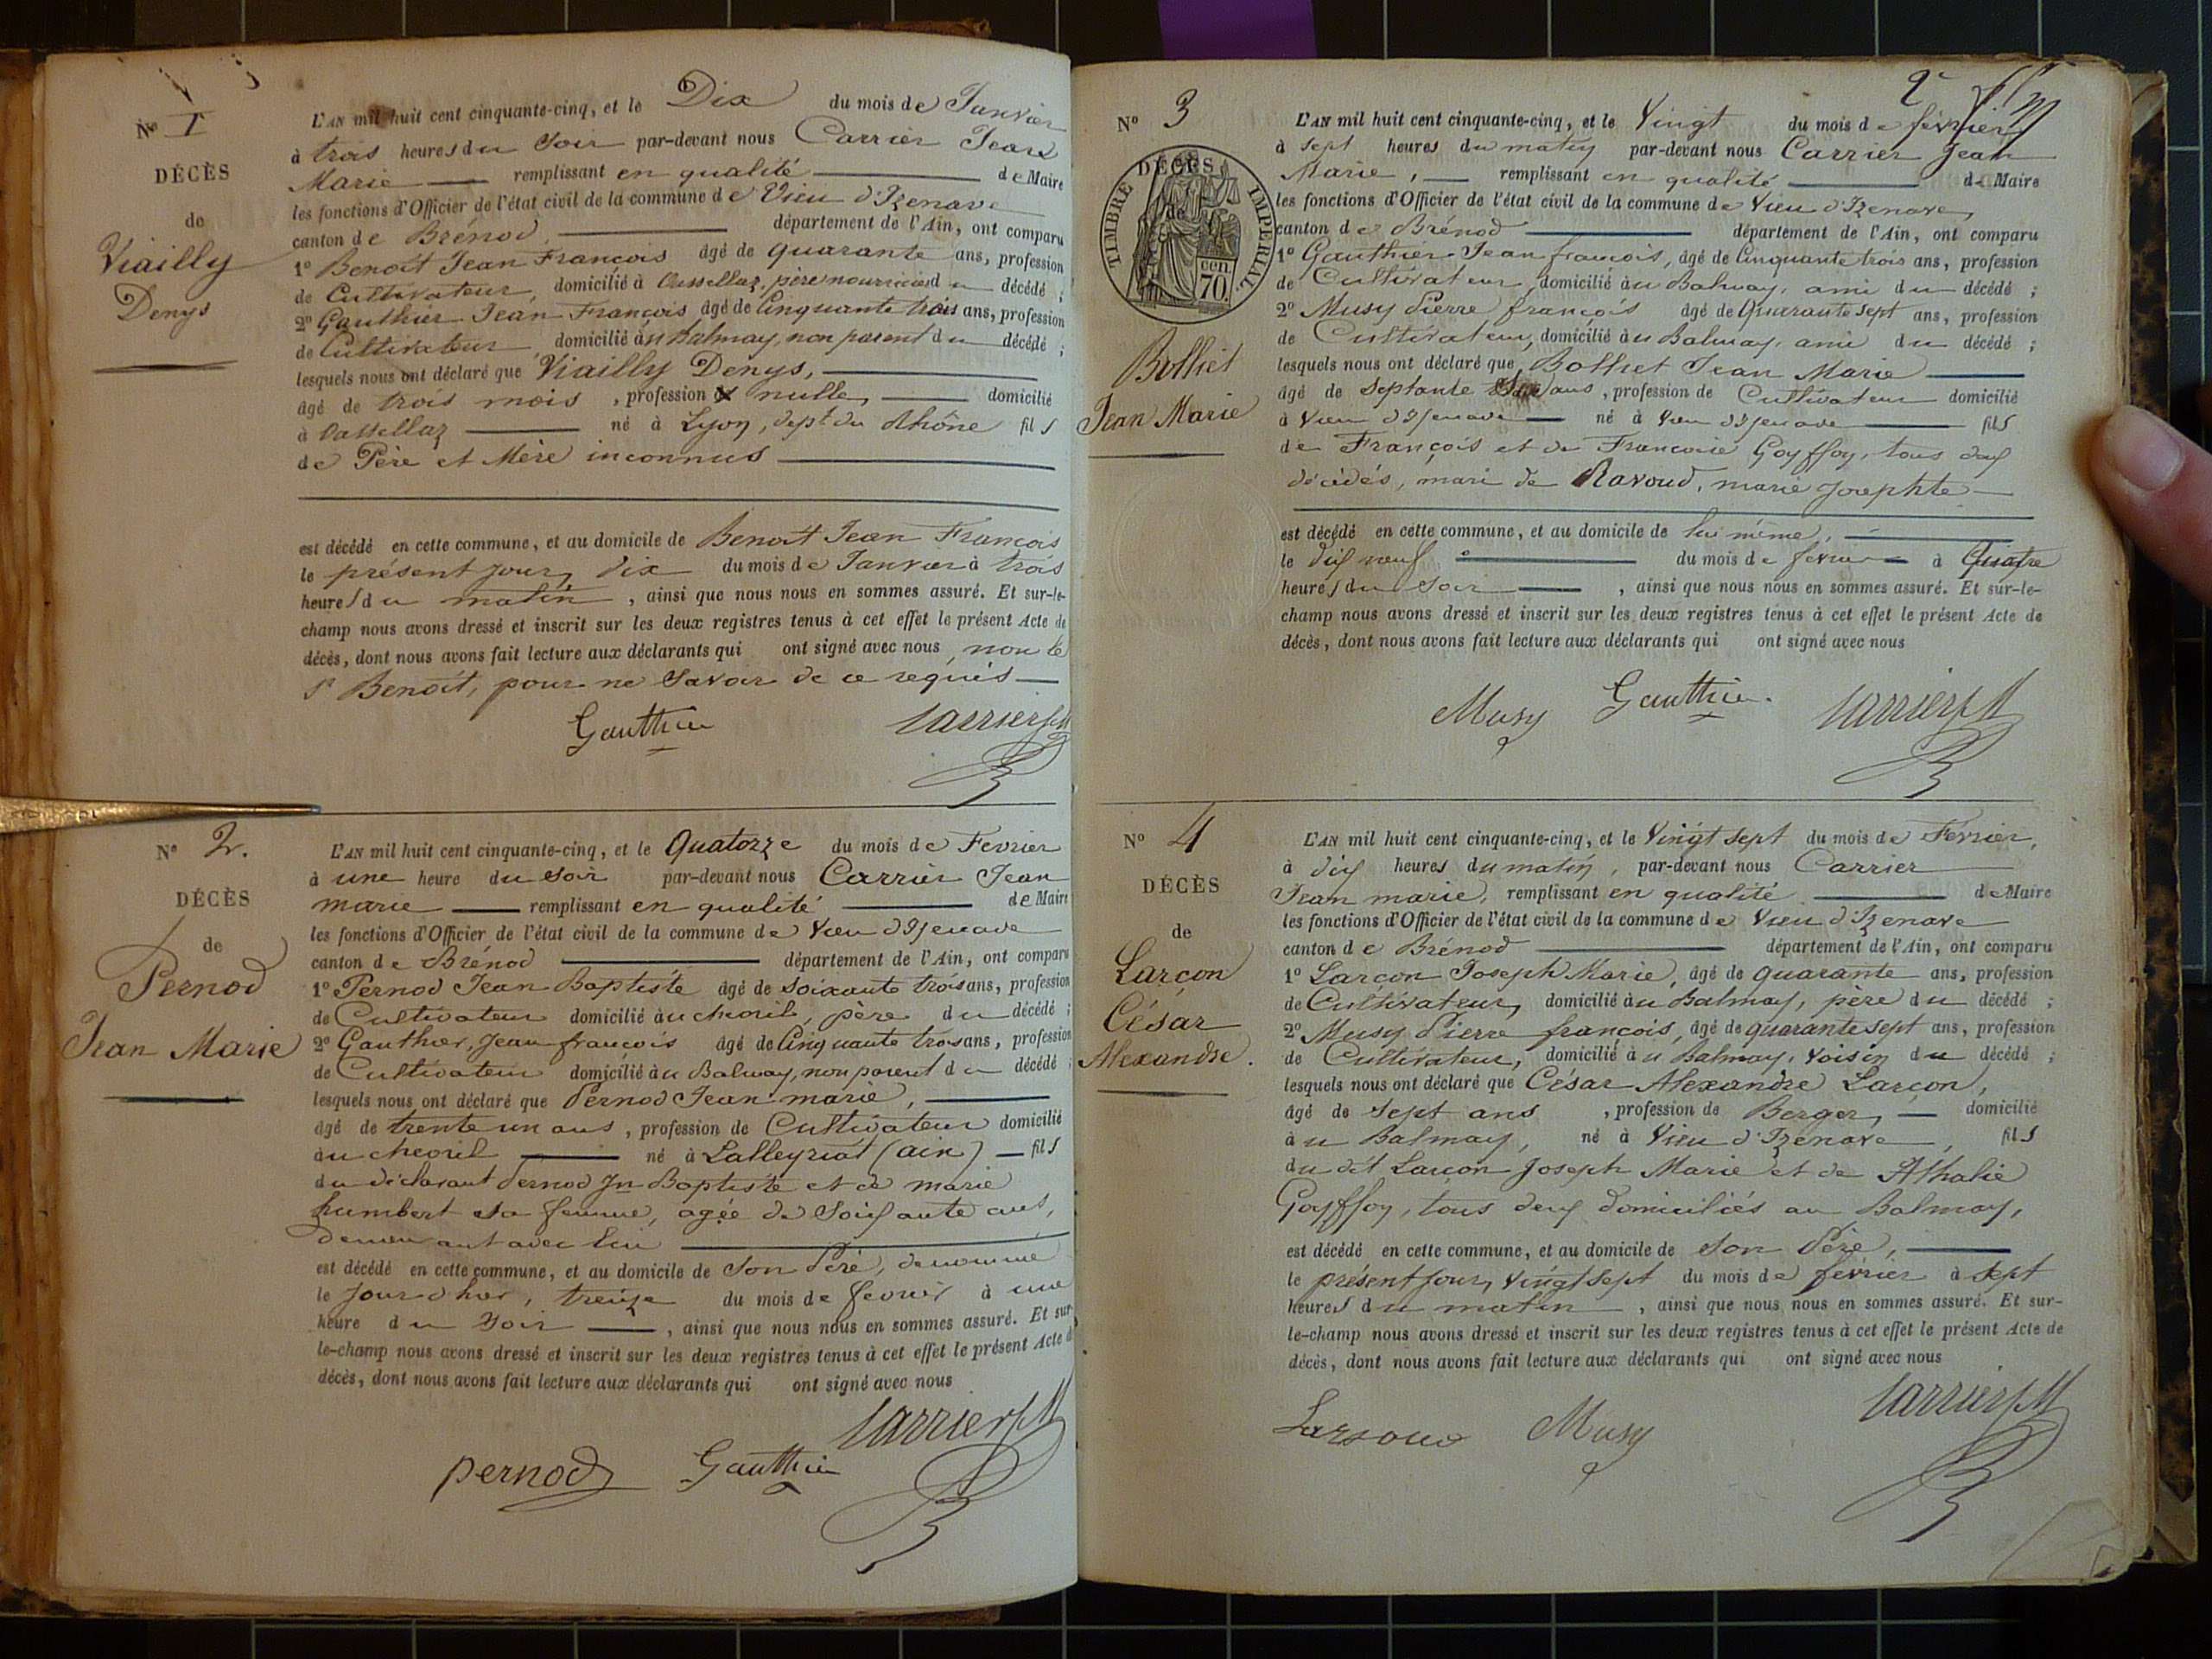 N° 1
DÉCÈS
de
Viailly
Denys
L'AN mil huit cent cinquante-cinq, et le Dix du mois de Janvier
à trois heures du Soir par-devant nous Carrier Jean
Marie remplissant en qualité de Maire
les fonctions d'Officier de l'état civil de la commune de Vieu d'Izenave
canton de Brénod département de l'Ain, ont comparu
1° Benoît Jean François âgé de quarante ans, profession
de Cultivateur, domicilié à Oussellaz, père nourricier du décédé ;
2° Gauthier Jean François âgé de Cinquante trois ans, profession
de Cultivateur domicilié au Balmay, non parent du décédé ;
lesquels nous ont déclaré que Viailly Denys,
âgé de trois mois , profession nulle, domicilié
à né à Lyon, dépt du Rhône fils
de Père et Mère inconnus
est décédé en cette commune, et au domicile de Benoît Jean François
le présent jour, dix du mois de Janvier à trois
heures du matin , ainsi que nous nous en sommes assuré. Et sur-le-
champ nous avons dressé et inscrit sur les deux registres tenus à cet effet le présent Acte de
décès, dont nous avons fait lecture aux déclarants qui ont signé avec nous, non le
Sr Benoît, pour ne Savoir de ce requis
Gauthier Carrier JM
N° 2.
DÉCÈS
de
Pernod
Jean Marie
L'AN mil huit cent cinquante-cinq, et le Quatorze du mois de Fevrier
à une heure du Soir par-devant nous Carrier Jean
marie remplissant en qualité de Maire
les fonctions d'Officier de l'état civil de la commune de Vieu d'Izenave
canton de Brénod département de l'Ain, ont comparu
1° Pernod Jean Baptiste âgé de soixante trois ans, profession
de Cultivateur domicilié au cheoril, père du décédé ;
2° Gauthier, Jean françois âgé de Cinquante trois ans, profession
de Cultivateur domicilié au Balmay, non parent du décédé ;
lesquels nous ont déclaré que Pernod Jean marie,
âgé de trente un ans , profession de Cultivateur domicilié
au cheoril né à Lalleyriat (ain) fils
du déclarant Pernod Jn Baptiste et de marie
humbert sa femme, agée de Soixante ans,
demeurant avec lui
est décédé en cette commune, et au domicile de Son Père, denommé
le Jour d'hier, treize du mois de fevrier à une
heure du Soir , ainsi que nous nous en sommes assuré. Et sur-
le-champ nous avons dressé et inscrit sur les deux registres tenus à cet effet le présent Acte de
décès, dont nous avons fait lecture aux déclarants qui ont signé avec nous
Carrier JM
Pernod Gauthier
2
N° 3
TIMBRE IMPÉRIAL
DÉCÈS
de
70 cen.
Bolliet
Jean Marie
L'AN mil huit cent cinquante-cinq, et le Vingt du mois de février
à sept heures du matin par-devant nous Carrier Jean
Marie, remplissant en qualité de Maire
les fonctions d'Officier de l'état civil de la commune de Vieu d'Izenave,
canton de Brénod département de l'Ain, ont comparu
1° Gauthier Jean françois, âgé de Cinquante trois ans, profession
de Cultivateur, domicilié au Balmay, ami du décédé ;
2° Musy Pierre françois âgé de Quarante sept ans, profession
de Cultivateur, domicilié au Balmay, ami du décédé ;
lesquels nous ont déclaré que Bolliet Jean Marie
âgé de septante ans, profession de Cultivateur domicilié
à Vieu d'Izenave né à Vieu d'Izenave fils
de François et de Francoise Goyffoy, tous deux
décédés, mari de Ravoud, marie Josephte
est décédé en cette commune, et au domicile de lui même,
le dix neuf du mois de fevrier à Quatre
heures du soir , ainsi que nous nous en sommes assuré. Et sur-le-
champ nous avons dressé et inscrit sur les deux registres tenus à cet effet le présent Acte de
décès, dont nous avons fait lecture aux déclarants qui ont signé avec nous
Musy Gauthier Carrier JM
N° 4
DÉCÈS
de
Larçon
César
Alexandre.
L'AN mil huit cent cinquante-cinq, et le Vingt sept du mois de Février,
à dix heures du matin, par-devant nous Carrier
Jean marie, remplissant en qualité de Maire
les fonctions d'Officier de l'état civil de la commune de Vieu d'Izenave
canton de Brénod département de l'Ain, ont comparu
1° Larçon Joseph Marie, âgé de quarante ans, profession
de Cultivateur, domicilié au Balmay, père du décédé ;
2° Musy Pierre françois, âgé de quarante sept ans, profession
de Cultivateur, domicilié au Balmay, voisin du décédé ;
lesquels nous ont déclaré que César Alexandre Larçon,
âgé de sept ans , profession de Berger, domicilié
au Balmay, né à Vieu d'Izenave, fils
du dit Larçon Joseph Marie et de Athalie
Goyffoy, tous deux domiciliés au Balmay,
est décédé en cette commune, et au domicile de Son Père,
le présent jour, vingt sept du mois de février à sept
heures du matin , ainsi que nous nous en sommes assuré. Et sur-
le-champ nous avons dressé et inscrit sur les deux registres tenus à cet effet le présent Acte de
décès, dont nous avons fait lecture aux déclarants qui ont signé avec nous
Larsoud Musy Carrier JM